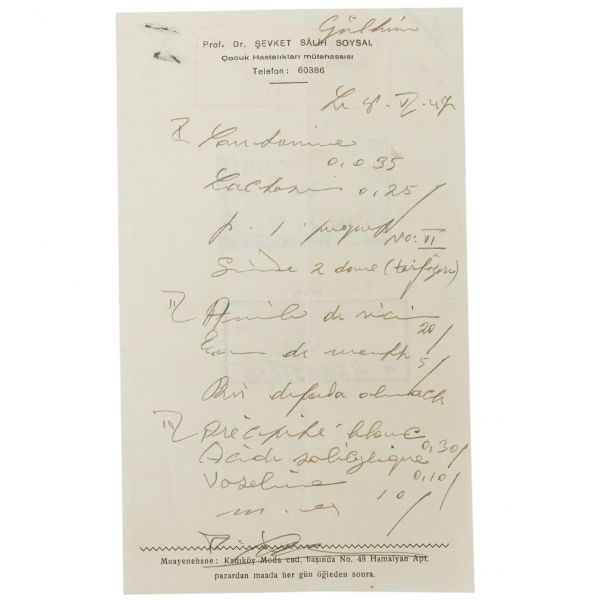 Gülhim
Prof. Dr. ŞEVKET SÂLİH SOYSAL
Çocuk Hastalıkları mütehassısı
Telefon: 60386
Le 8. VI. 47
I
Santonine
0,035
Lactose 0,25
p. 1
No: VI
Günde 2 dane
II Huile de ricin
20
Eau de menth 5
Bir defada olmach
III précipité blanc
0,30
Acide salicylique
0,10
Vaseline
10
Muayenehane: Kadıköy Moda cad. başında No. 48 Hamalyan Apt.
pazardan maada her gün öğleden sonra.